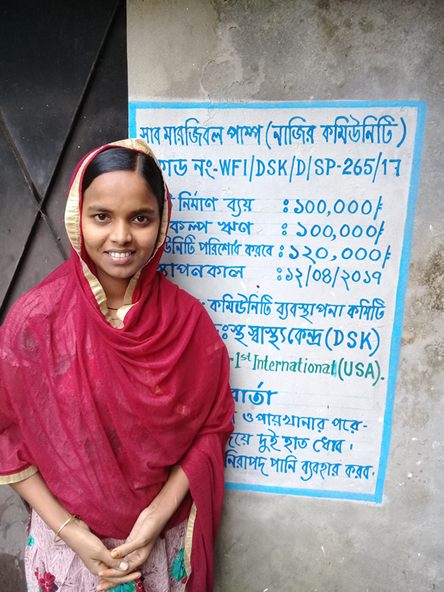 সাব মারজিবল পাম্প (নাজির কমিউনিটি)
কোড নং-WFI/DSK/D/SP-265/17
নির্মাণ ব্যয় : ১০০,০০০/
ঋণ : ১০০,০০০/
পরিশোধ করবে : ১২০,০০০/
: ১২/০৪/২০১৭
কমিউনিটি ব্যবস্থাপনা কমিটি
স্বাস্থ্যকেন্দ্র (DSK)
-1st International (USA).
বার্তা
ও পায়খানার পরে-
দুই হাত ধোব।
নিরাপদ পানি ব্যবহার করব।